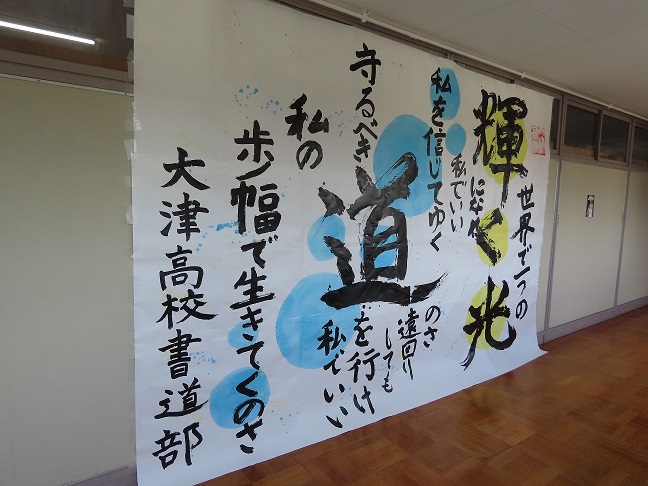 世界で一つの
輝く光
になれ
私でいい
私を信じてゆく
のさ
遠回り
しても
守るべき
道
を行け
私でいい
私の
歩幅で生きてくのさ
大津高校書道部